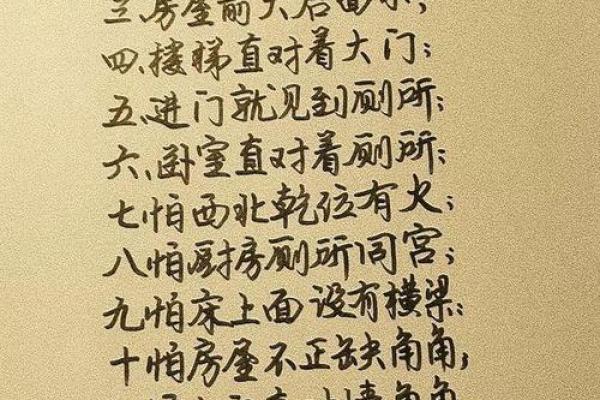 三、房屋前大后面
四、楼梯直对着大门；
五、进门就见到厕所；
六、卧室直对着厕所；
七怕西北乾位有火；
八怕厨房厕所同宫；
九怕床上面设有横梁：
十怕房屋不正缺角角；